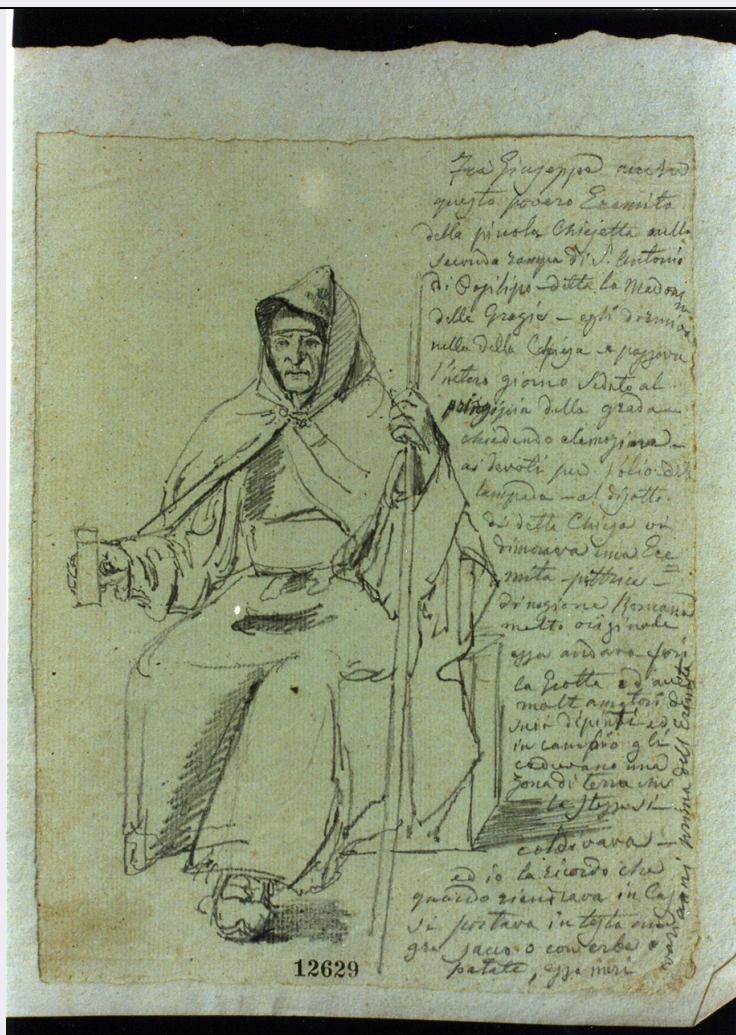 Fra Giuseppe
questo povero Eremita
della picola Chiejetta nella
seconda rampa di S. Antonio
di Posilipo detta la Madonna
delle Grazie – egli dormiva
nella della Chiesa e passava
l'intero giorno seduto al
principio della grada
chiedendo elemosina –
ai devoti per l'olio della
lampada – al disotto
di detta Chiesa vi
dimorava una Ere
mita pittrice =
di nazione Romana
molto originale
essa andava fori
la Grotta ed avea
molti amatori di
suoi dipinti ed
in cambio gli
cedevano una
zona di terra che
la stessa si
coldivava –
ed io la ricordo che
quando rientrava in
si portava in testa un
gra sacco o con erbe o
patate, essa morì
varii anni prima dell Eremita
12629